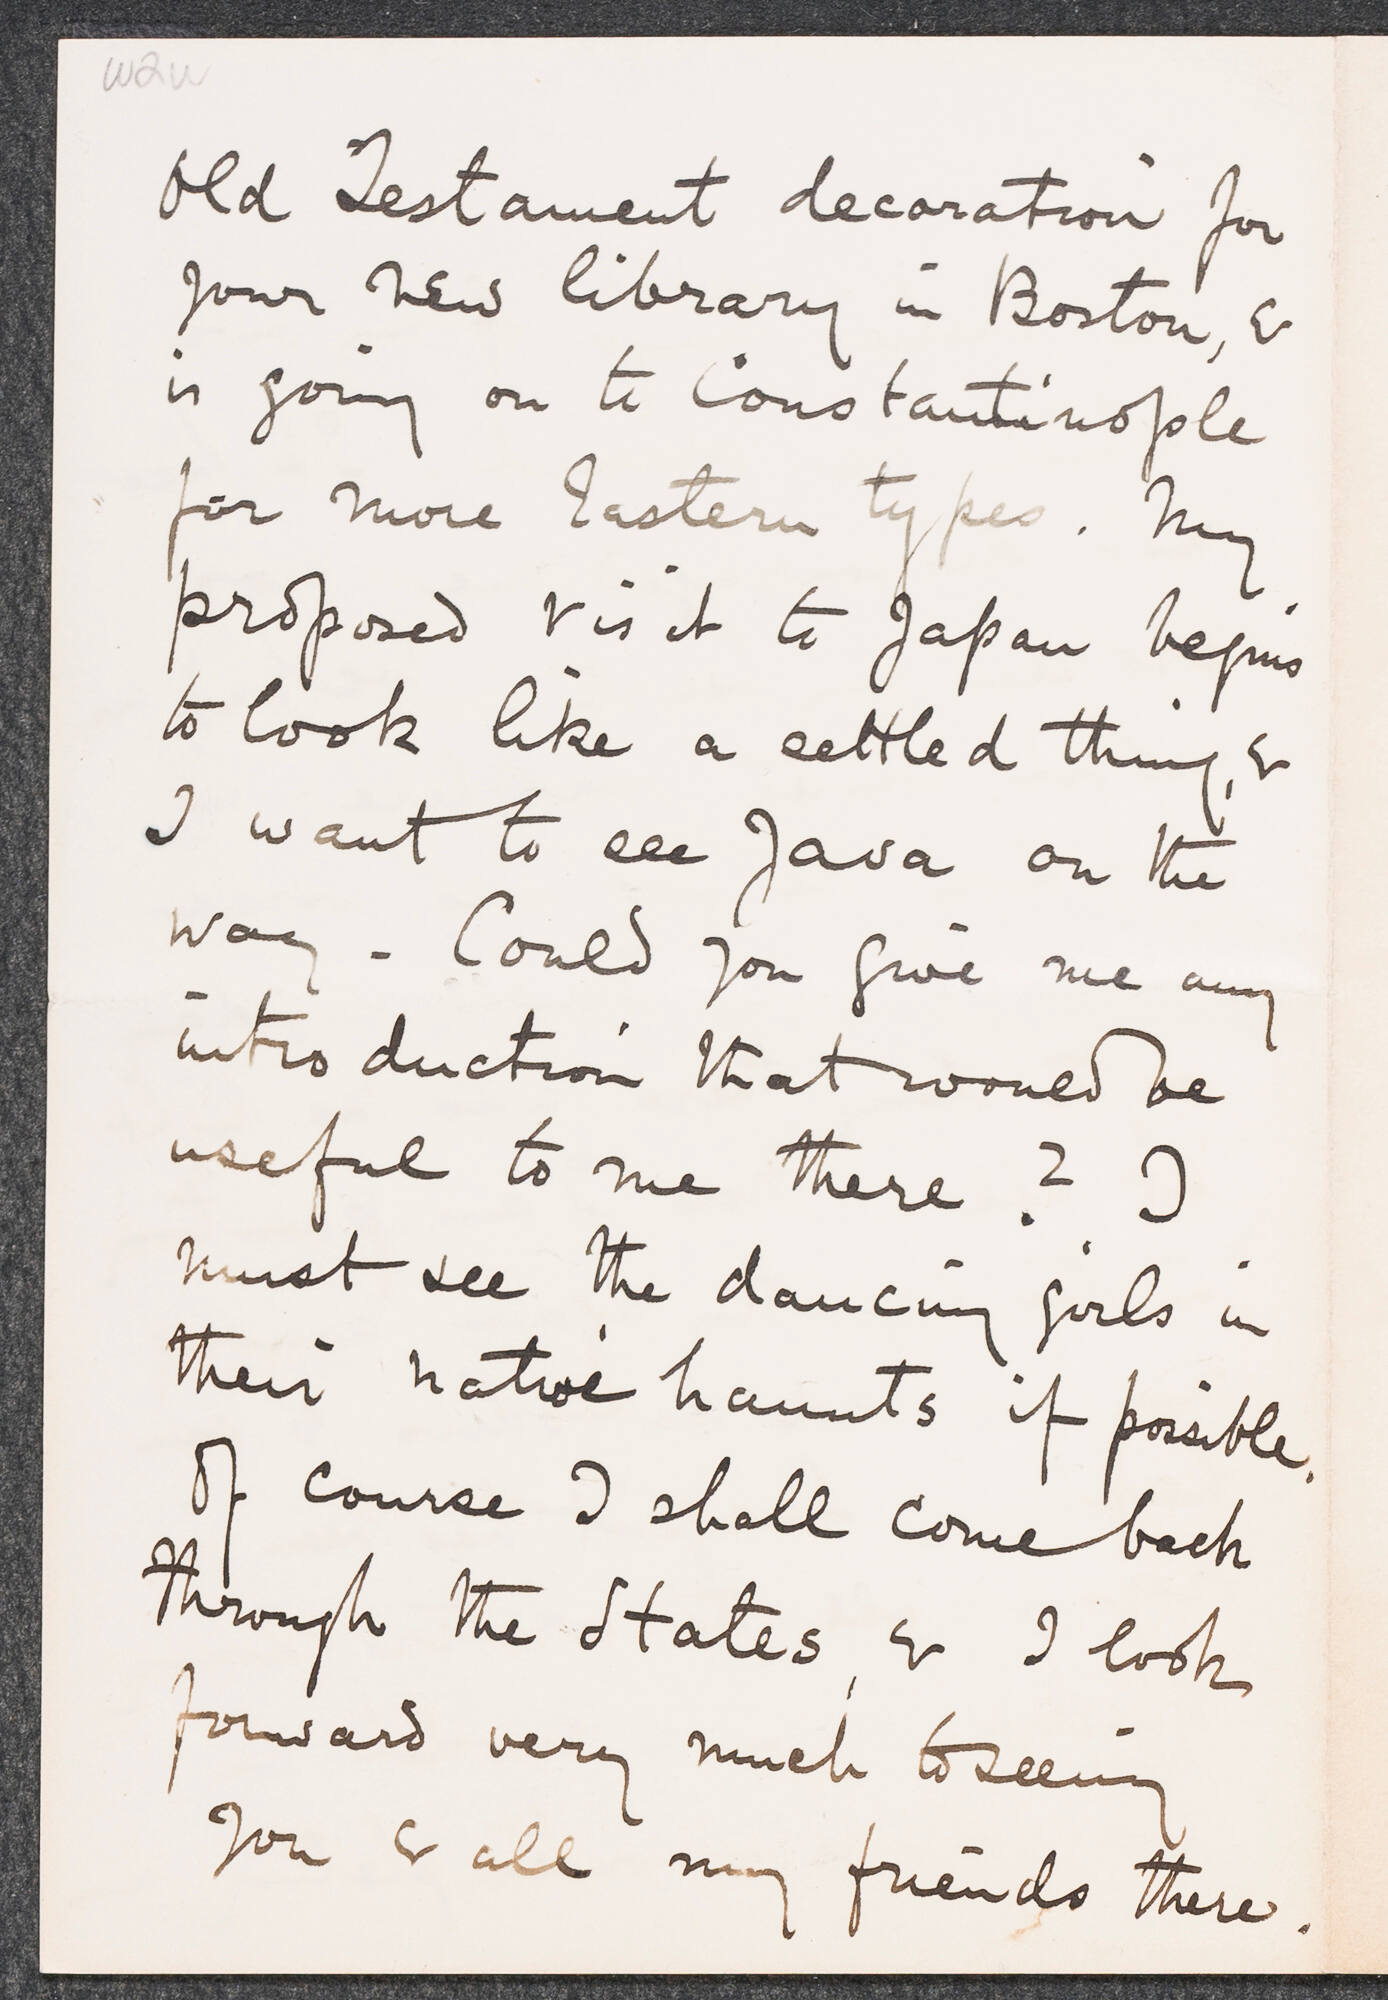 Old Testament decoration for
your new library in Boston, &
is going on to Constantinople
for more Eastern types. My
proposed visit to Japan begins
to look like a settled thing, &
I want to see Java on the
way - Could you give me any
introduction that would be
useful to me there? I
must see the dancing girls in
their native haunts if possible.
Of course I shall come back
through the States, & I look
forward very much to seeing
you & all my friends there.